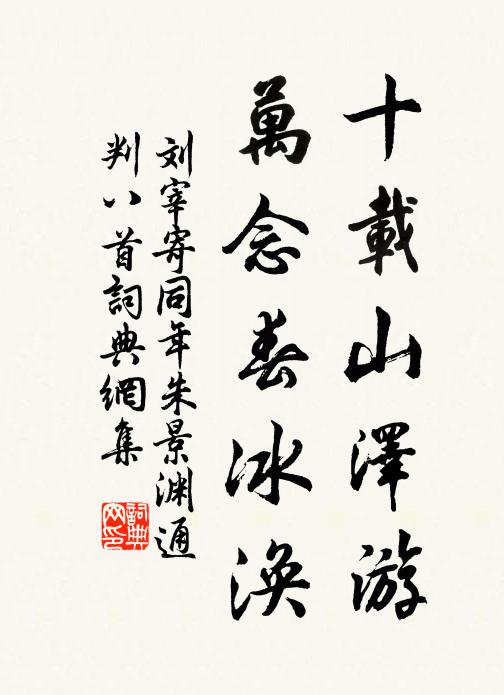 十載山澤游
萬念春冰渙
刘宰寄同年朱景渊通
判八首詞典網集
詞典网印